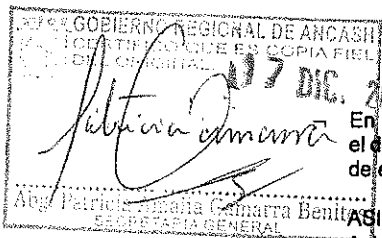 GOBIERNO REGIONAL DE ANCASH
CERTIFICO QUE ES COPIA FIEL
DEL ORIGINAL
17 DIC. 2
En
el d
de e
Patricia Gamarra
Abg. Patricia Amalia Gamarra Benites
SECRETARIA GENERAL
ASI